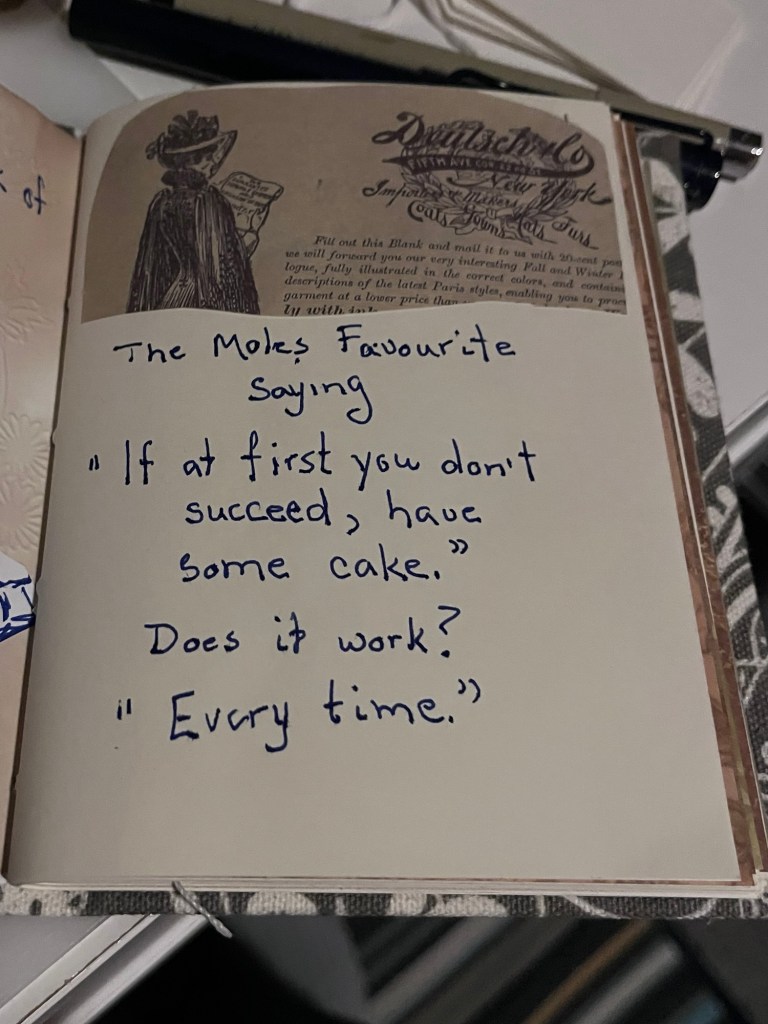 of
Deutsch & Co
FIFTH AVE COR
New York
Importers & Makers
Coats Gowns Hats Furs
Fill out this Blank and mail it to us with 20-cent
we will forward you our very interesting Fall and Winter
logue, fully illustrated in the correct colors, and
descriptions of the latest Paris styles, enabling you to
garment at a lower price than
ly with
The Moles Favourite
Saying
"If at first you don't
succeed, have
some cake."
Does it work?
"Every time."